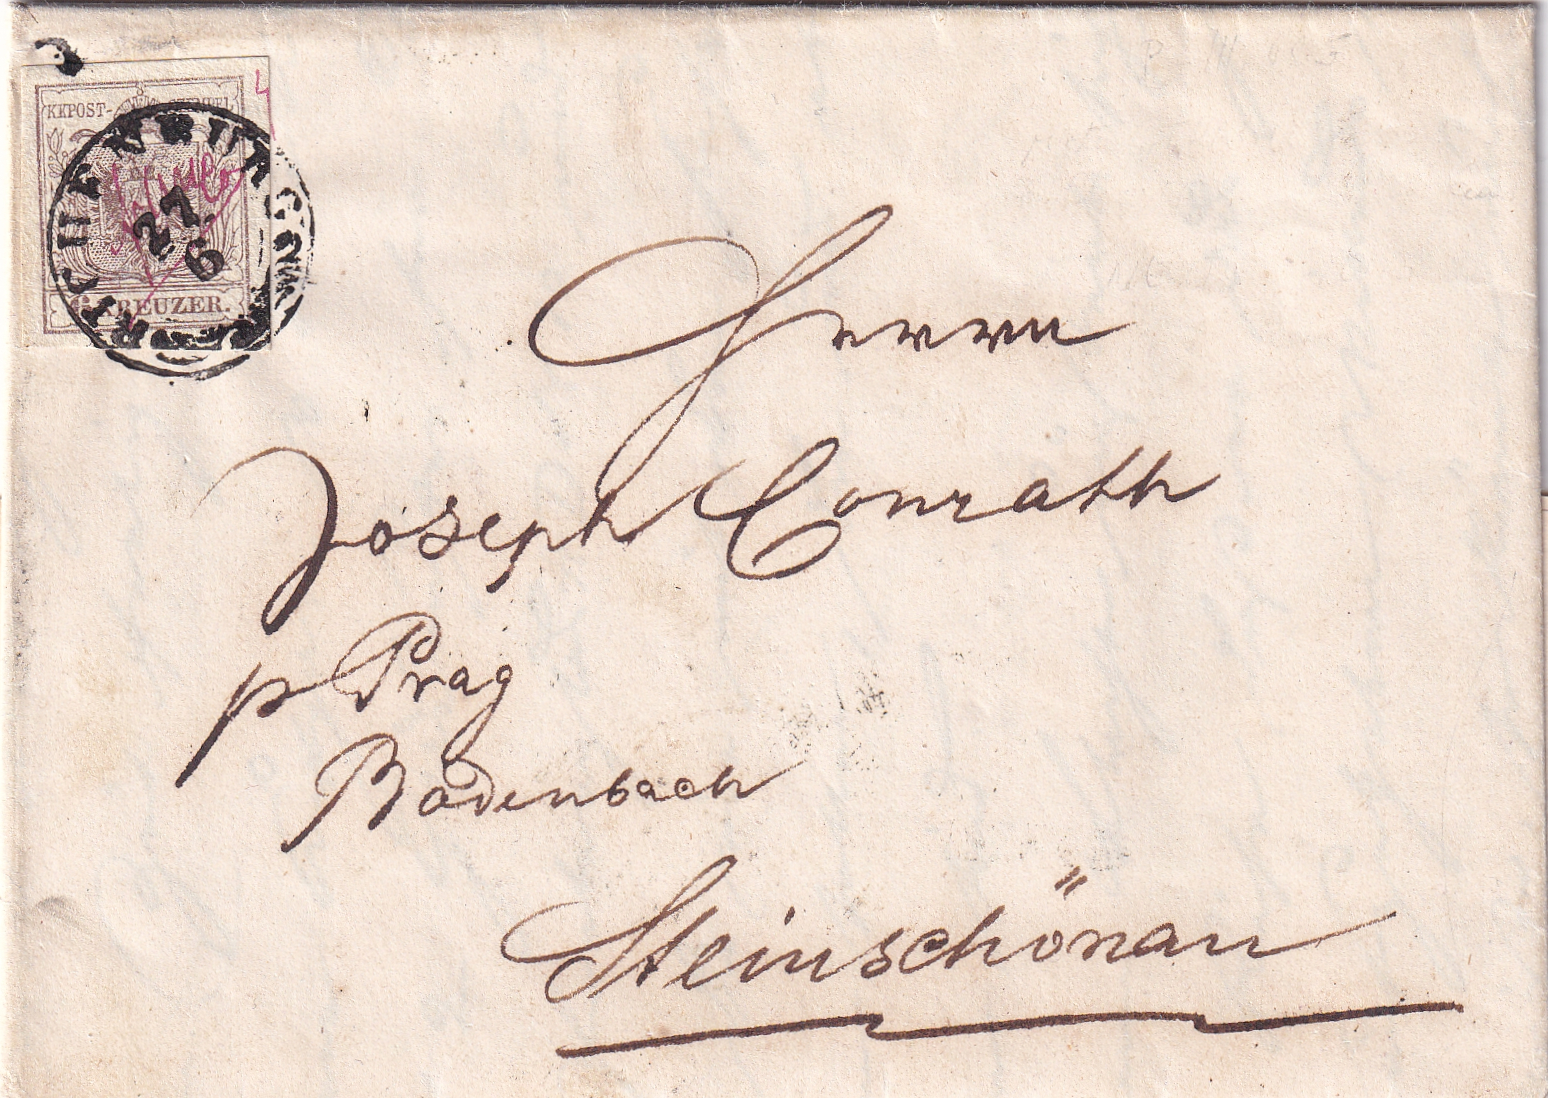 KKPOST-STEMPEL
REICHENBURG
27
6
6 KREUZER.
Herrn
Joseph Conrath
p Prag
Bodenbach
Steinschönau